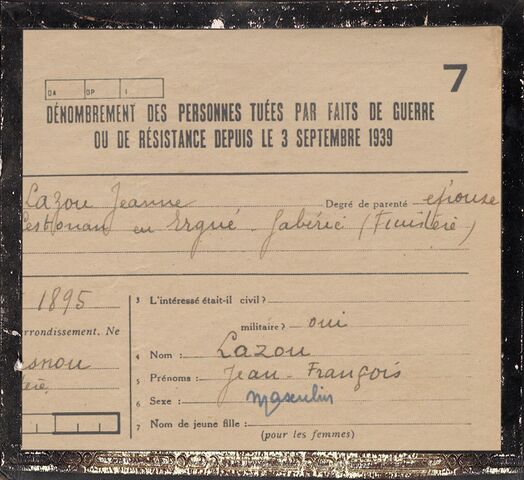 7
DA DP I
DÉNOMBREMENT DES PERSONNES TUÉES PAR FAITS DE GUERRE
OU DE RÉSISTANCE DEPUIS LE 3 SEPTEMBRE 1939
Lazou Jeanne Degré de parenté épouse
Lestonan en Ergué-Gabéric (Finistère)
1895
3 L'intéressé était-il civil?
militaire? oui
rrondissement. Ne
4 Nom : Lazou
snou
5 Prénoms : Jean-François
6 Sexe : Masculin
7 Nom de jeune fille :
(pour les femmes)